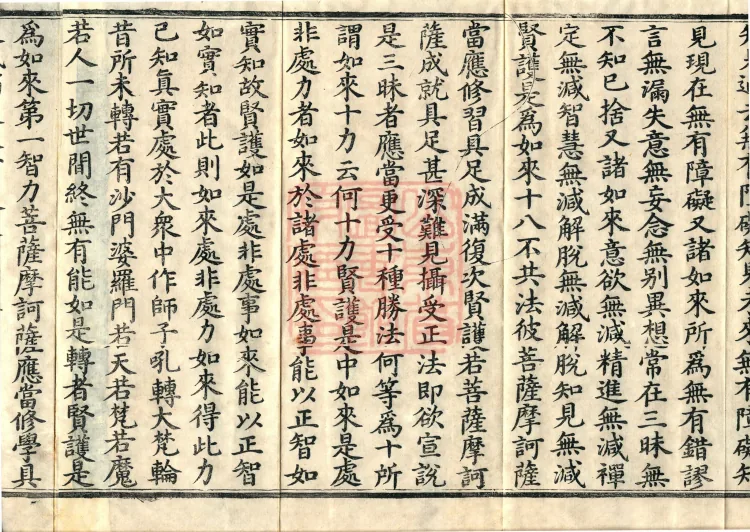 見現在無有障礙又諸如來所爲無有錯謬
言無漏失意無妄念無別異想常在三昧無
不知已捨又諸如來意欲無減精進無減禪
定無減智慧無減解脫無減解脫知見無減
賢護是爲如來十八不共法彼菩薩摩訶薩
當應修習具足成滿復次賢護若菩薩摩訶
薩成就具足甚深難見攝受正法即欲宣說
是三昧者應當更受十種勝法何等爲十所
謂如來十力云何十力賢護是中如來是處
非處力者如來於諸處非處事能以正智如
實知故賢護如是處非處事如來能以正智
如實知者此則如來處非處力如來得此力
已知真實處於大衆中作師子吼轉大梵輪
昔所未轉若有沙門婆羅門若天若梵若魔
若人一切世間終無有能如是轉者賢護是
爲如來第一智力菩薩摩訶薩應當修學具